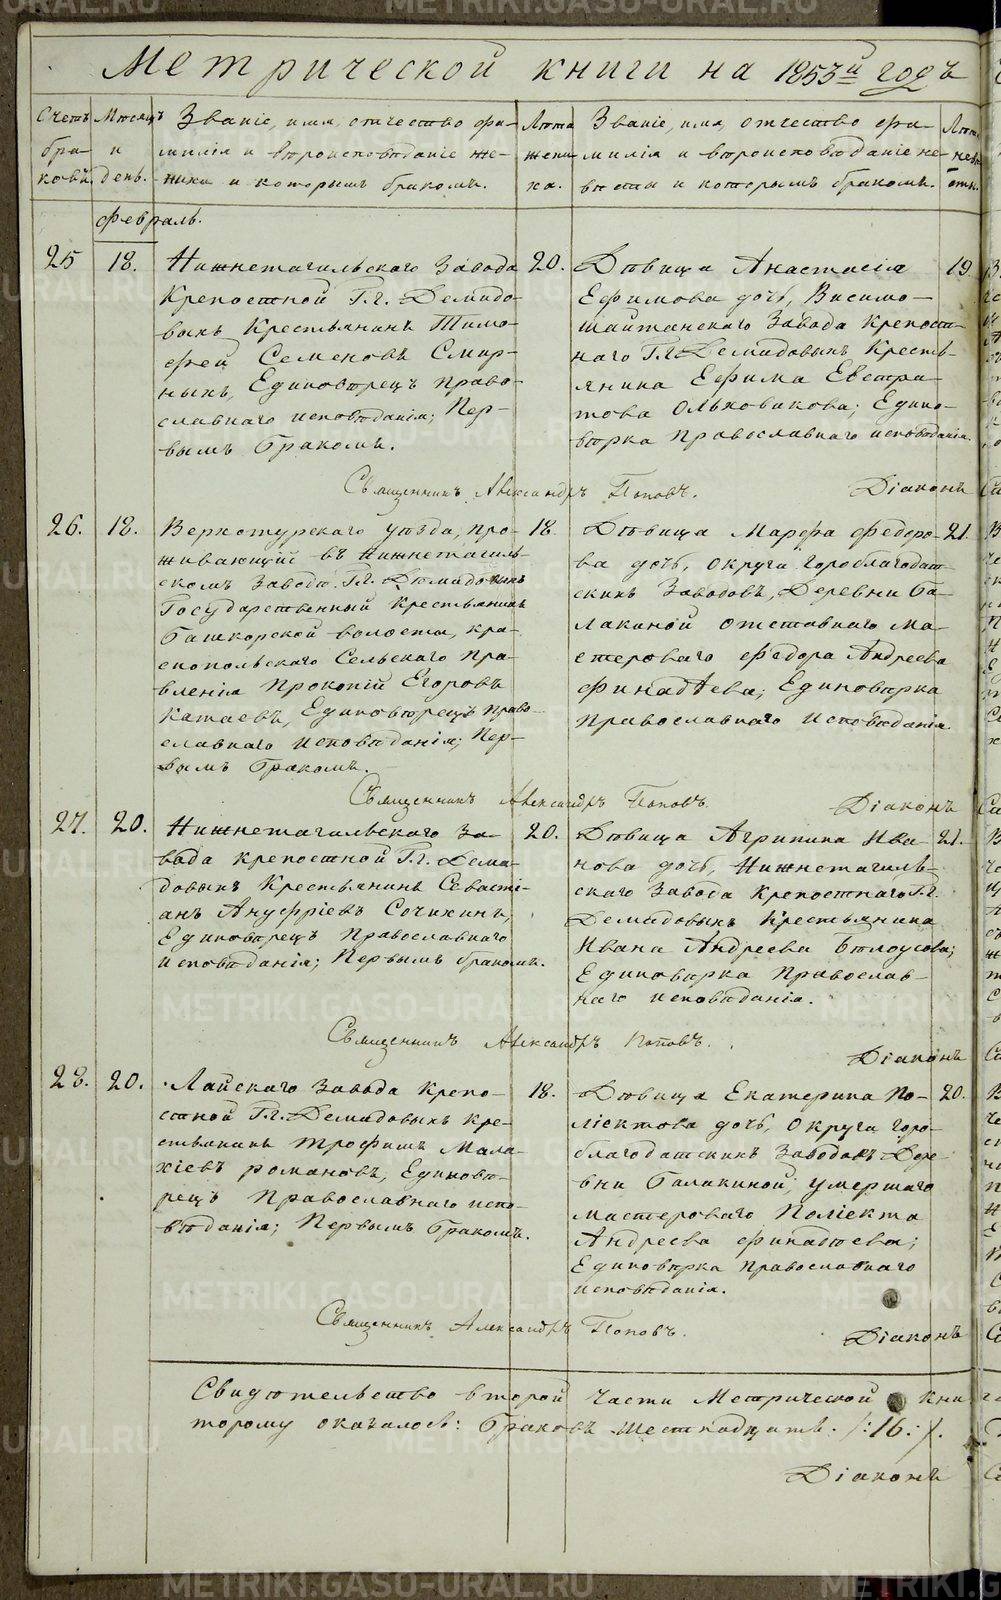 Метрической книги на 1853й годъ
Счетъ браковъ.
Месяцъ и день.
Званіе, имя, отчество, фамилія и вѣроисповѣданіе женика и которымъ бракомъ.
Лета жениха.
Званіе, имя, отчество, фамилія и вѣроисповѣданіе невѣсты и которымъ бракомъ.
Лета невѣсты.
Февраль.
25
18.
Нижнетагильскаго Завода
Крепостной Г.г. Демидо-
выхъ Крестьянинъ Тимо-
фей Семеновъ Смир-
ныхъ, Единовѣрецъ право-
славнаго исповѣданія; Пер-
вымъ бракомъ.
20.
Дѣвица Анастасія
Ефимова дочь, Висимо-
шайтанскаго Завода Крепост-
наго Г.г. Демидовыхъ Кресть-
янина Ефима Евстра-
това Ольховикова; Едино-
вѣрка Православнаго исповѣданія.
19.
Священникъ Александръ Поповъ.
Діаконъ
26.
18.
Верхотурскаго уѣзда, про-
живающій въ Нижнетагиль-
скомъ Заводѣ Г.г. Демидовыхъ
Государственный Крестьянинъ
Башкорской волости, кра-
снопольскаго Сельскаго Пра-
вленія Прокопій Егоровъ
Катаевъ, Единовѣрецъ право-
славнаго исповѣданія; Пер-
вымъ бракомъ.
18
Дѣвица Марфа Федоро-
ва дочь, округа Гороблагодат-
скихъ Заводовъ, Деревни Ба-
лакиной отставнаго Ма-
стероваго Федора Андреева
Финадѣева; Единовѣрка
Православнаго исповѣданія.
21.
Священникъ Александръ Поповъ.
Діаконъ
27.
20.
Нижнетагильскаго За-
вода крепостной Г.г. Деми-
довыхъ Крестьянинъ Севасті-
анъ Ануфріевъ Сочихинъ,
Единовѣрецъ Православнаго
исповѣданія; Первымъ бракомъ.
20.
Дѣвица Агрипина Ива
нова дочь, Нижнетагиль-
скаго Завода Крепостнаго Г.г.
Демидовыхъ Крестьянина
Ивана Андреева Бѣлоусова;
Единовѣрка Православ-
наго исповѣданія.
21.
Священникъ Александръ Поповъ.
Діаконъ
28.
20.
Лайскаго Завода Крепо-
стной Г.г. Демидовыхъ Кре-
стьянинъ Трофимъ Мала-
хіевъ Романовъ, Единовѣ-
рецъ Православнаго испо-
вѣданія; Первымъ бракомъ.
18.
Дѣвица Екатерина По-
ліектова дочь, Округа Горо-
благодатскихъ Заводовъ Дере-
вни Балакиной, умершаго
мастероваго Поліекта
Андреева Финадѣева;
Единовѣрка Православнаго
исповѣданія.
20.
Священникъ Александръ Поповъ.
Діаконъ
Свидѣтельство второй части Метрической кни
торому оказалось: Браковъ шестнадцать. /:16:/.
Діаконъ
METRIKI.GASO-URAL.RU